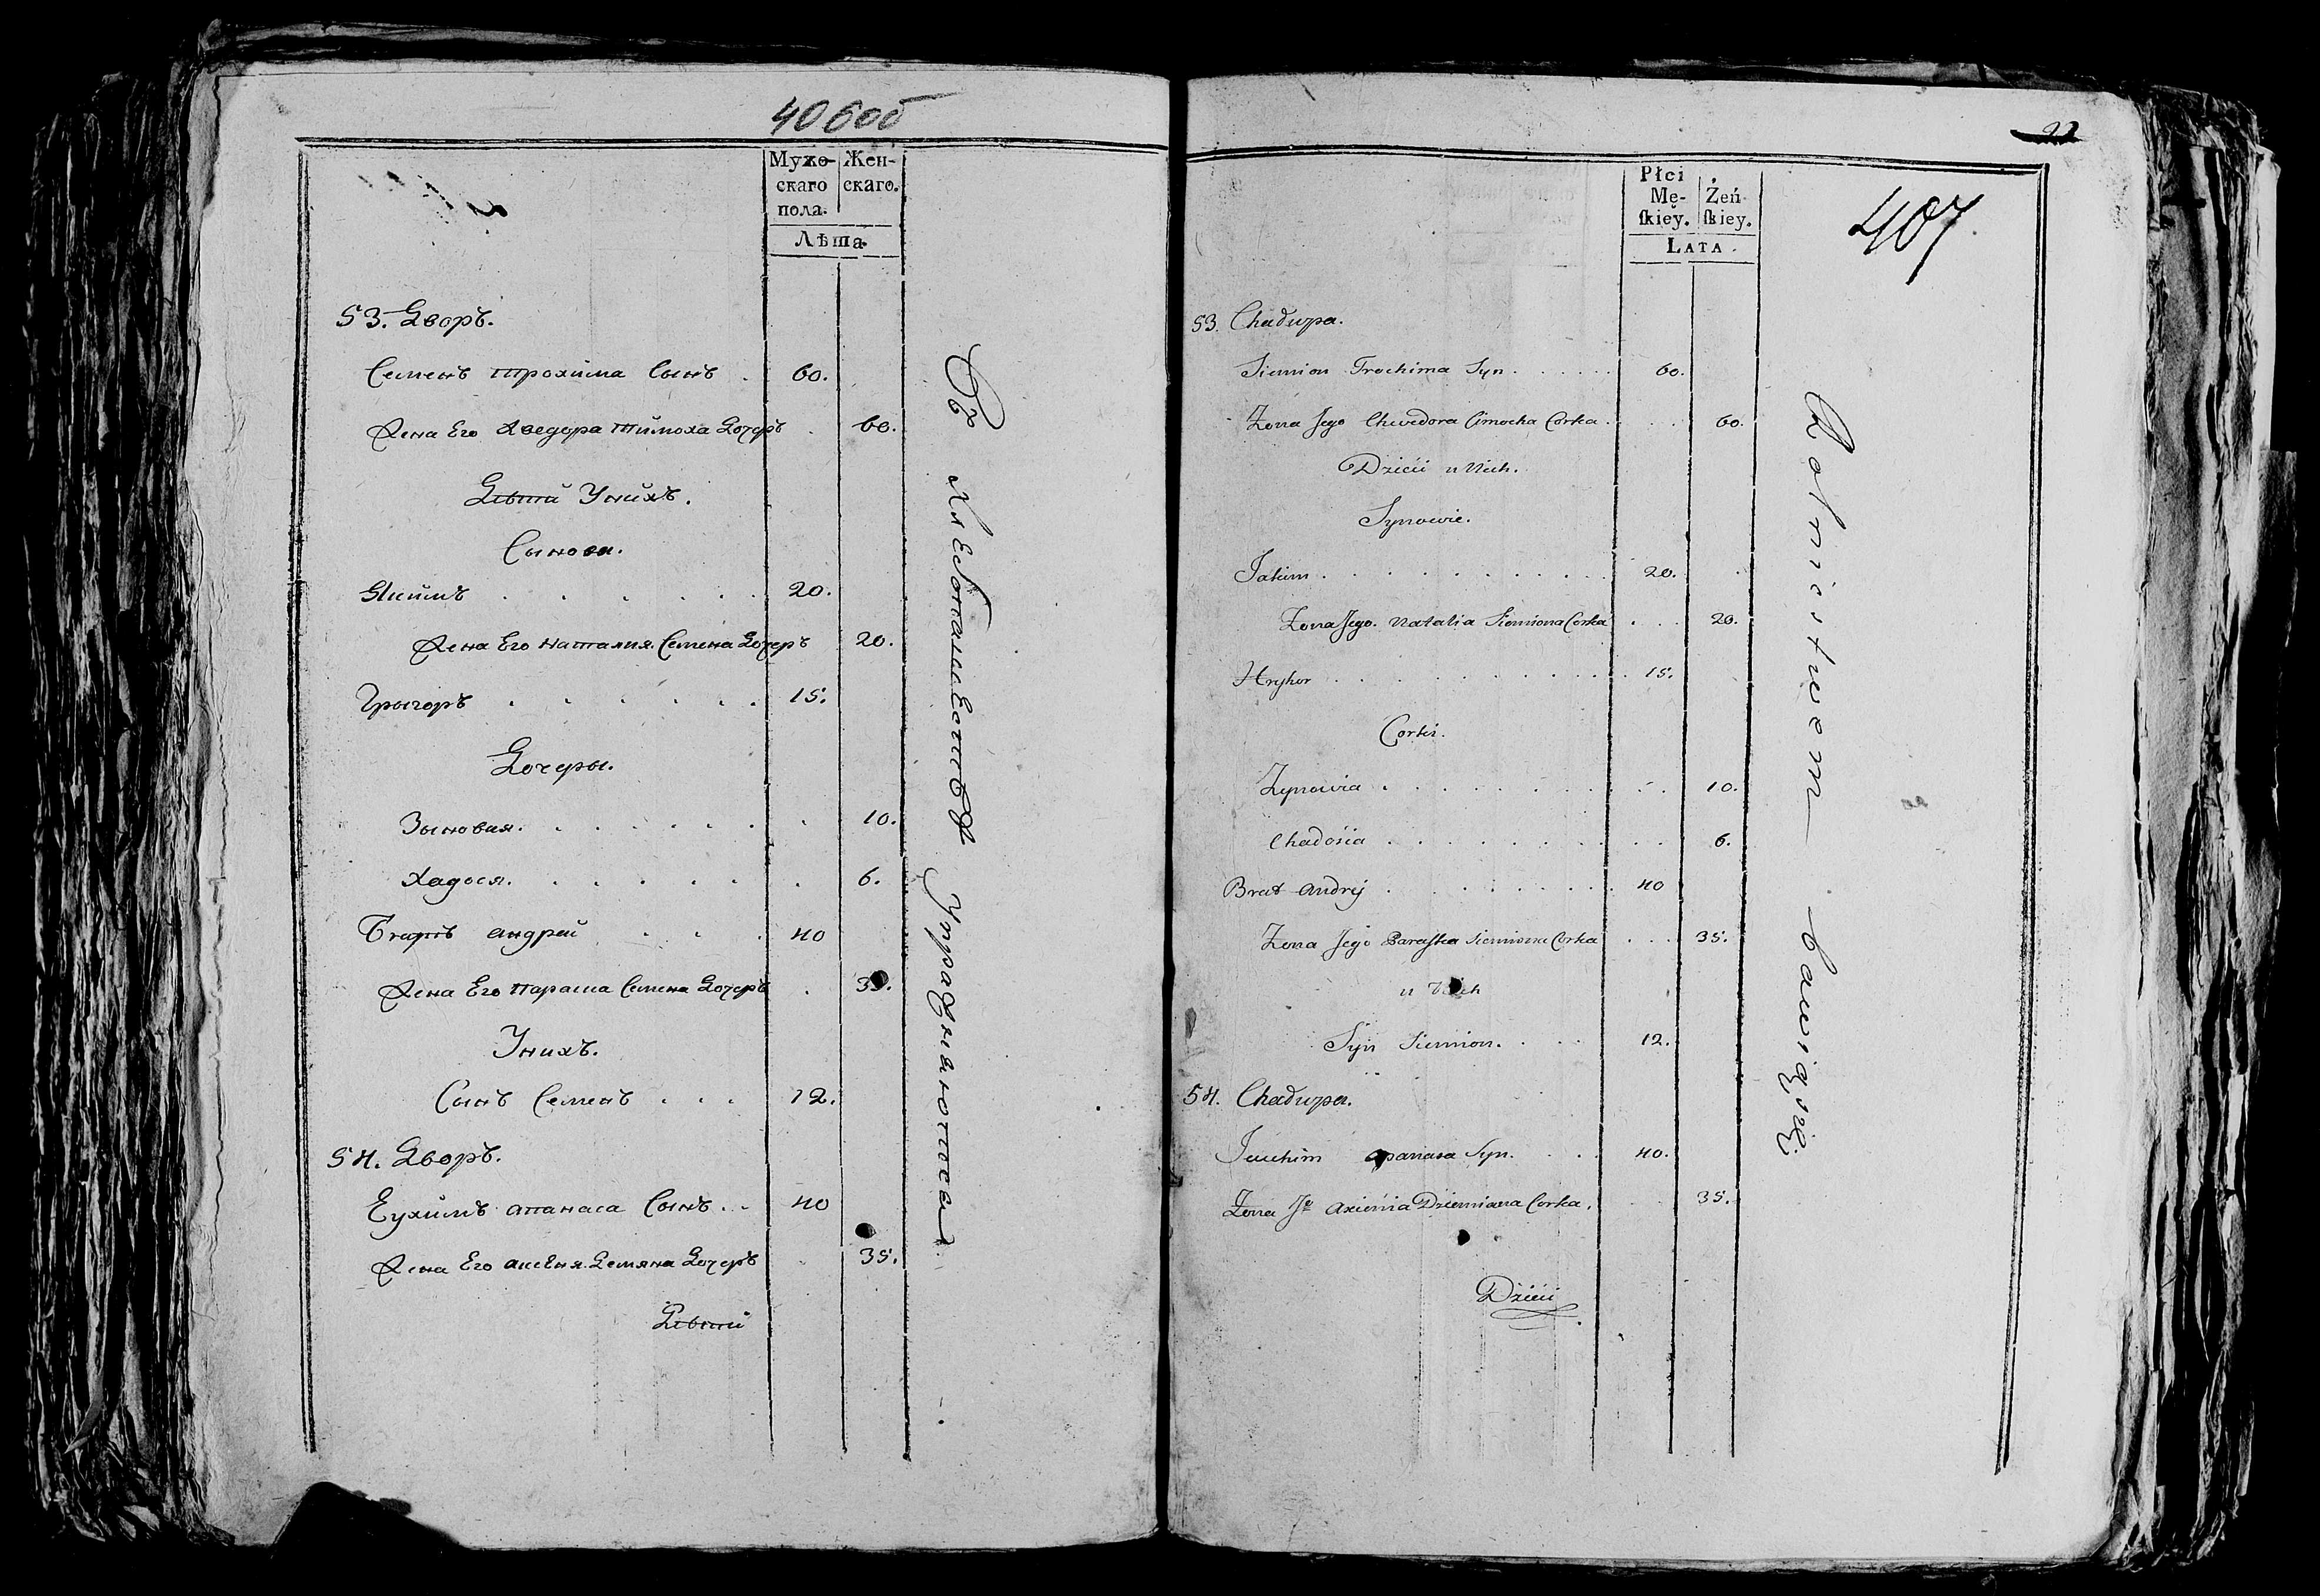 406об
Мужескаго пола.
Женскаго.
Лѣта.
53. Дворъ.
Семенъ Трохима Сынъ . 60.
Жена Его Хведора Тимоха Дочеръ . 60.
Дѣти Унихъ.
Сынови.
Якимъ . . . . . . 20.
Жена Его Наталия Семена Дочеръ 20.
Грыгоръ . . . . . . 15.
Дочеры.
Зыновия . . . . . . 10.
Хадося. . . . . . . 6.
Братъ андрей . . . 40
Жена Его Параша Семена Дочеръ . 35.
Унихъ.
Сынъ Семенъ . . . 12.
54. Дворъ.
Еухимъ апанаса Сынъ . . 40
Жена Его аксеня Демяна Дочеръ . 35.
Дѣти
Въ Хлебопашестве Упражняются
22
407
Płci Męſkiey.
Żeńſkiey.
LATA.
53. Chadupa.
Siemion Trochima Syn . . . . . 60.
Zona Jego Chwedora Cimocha Corka . . . 60.
Dzieći u Nich.
Synowie.
Jakim . . . . . . . . . 20.
Zona Jego Natalia Siemiona Corka . . . 20.
Hryhor . . . . . . . . . . 15.
Corki.
Zynowia . . . . . . . . . . 10.
Chadośia . . . . . . . . . 6.
Brat Andrej . . . . . . . . 40
Zona Jego Paraſka Siemiona Corka . . . 35.
u Nich
Syn Siemion. . . . 12.
54. Chadupa.
Jeuchim apanasa Syn. . . . 40.
Zona Jᵒ axienia Dziemiana Corka. . . 35.
Dzieći
Rolnictwem bawią się